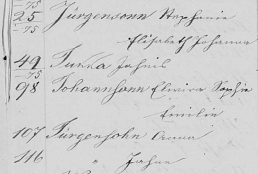 75
25 Jürgensonn Stephanie
75
Elisabeth Johanna
49 Tunna Johnis
75
98 Johannsonn Elwira Sophie
Emilie
107 Jürgensohn Anna
116 " Johne